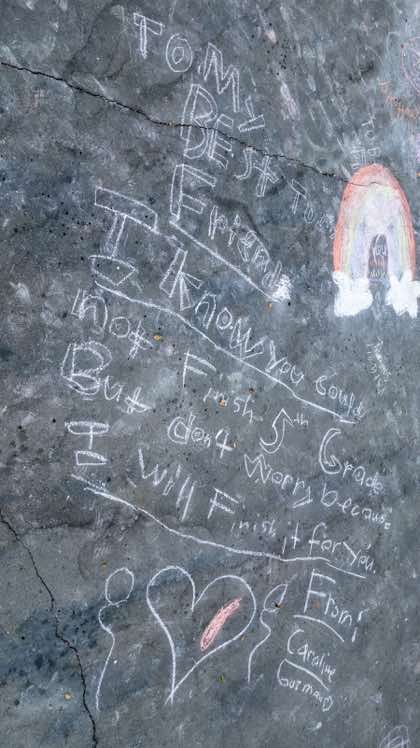 To My
BEst
Friend
I Know you Could
not Finish 5th Grade
But don't Worry because
I will Finish it for you.
From:
Caroline